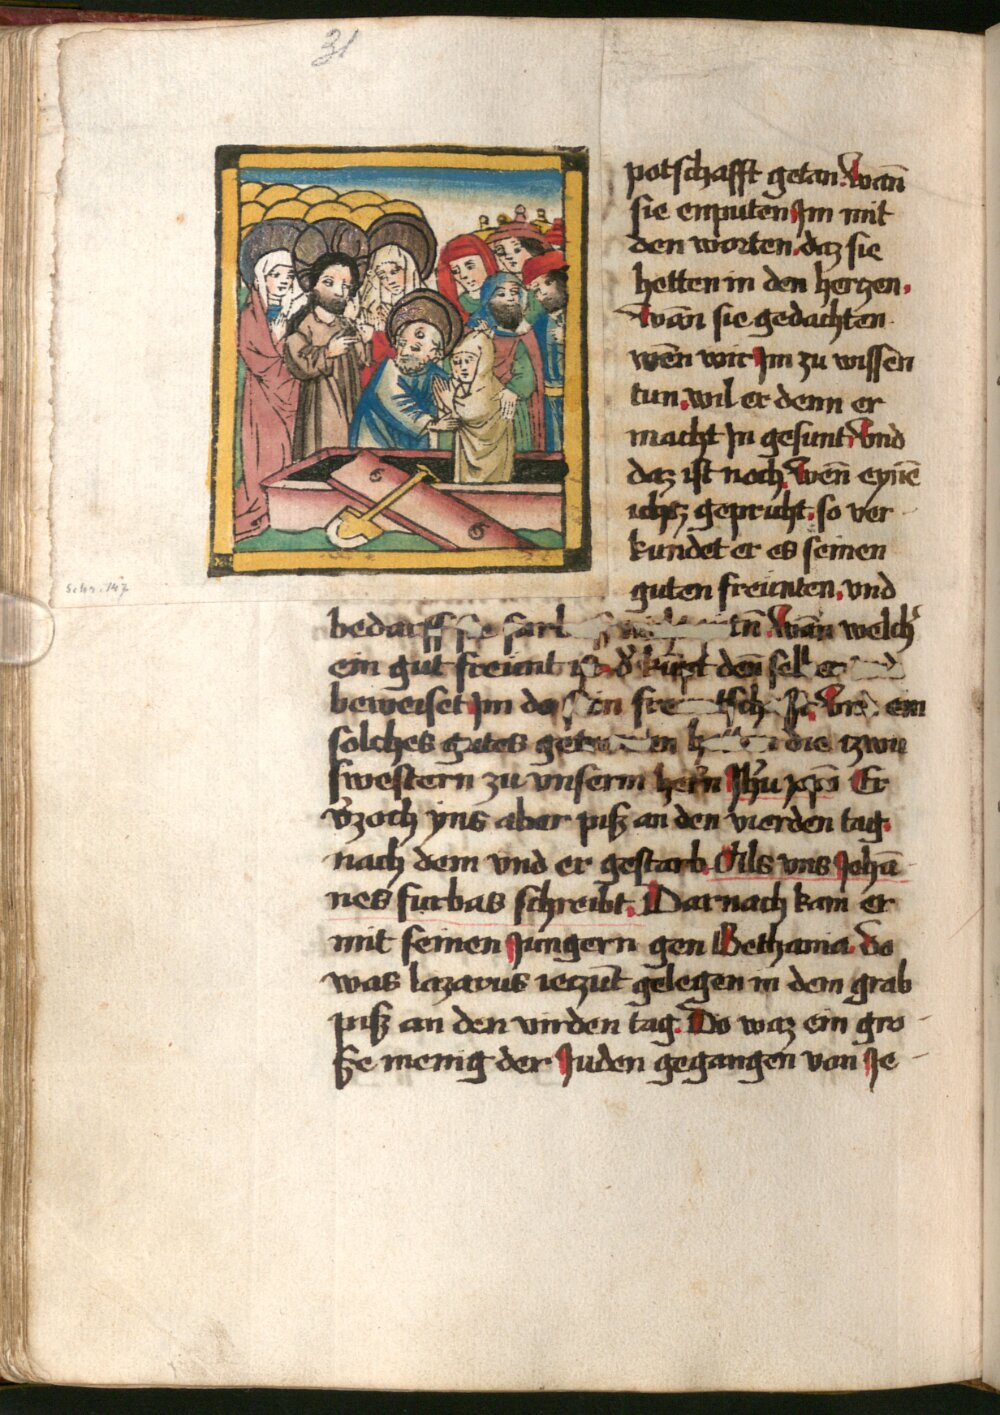 31
potschafft getan. wān
sie enputen Im mit
den worten. daz sie
hetten in den hertzen.
wān sie gedachten
wēn wir Im zu wissen
tun. wil er denn er
macht In gesunt. Vnd
daz ist noch. wēn eynē
ichtz gepricht. so ver-
kundet er es seinen
guten freunten. vnd
bedarff wān welch'
ein gut freunt
beweiset Im ein
solches gutes die tzwu
swestern zu vnserm hern Jhū xpō Er
v'zoch yns aber piß an den vierden tag.
nach dem vnd er gestarb. Als vns Johā
nes furbas schreibt. Darnach kam er
mit seinen Jungern gen Bethania. do
was lazarus ietzūt gelegen in dem grab
piß an den virden tag. Do waz ein gro-
ße menig der Juden gegangen von Je-
Schr. 147